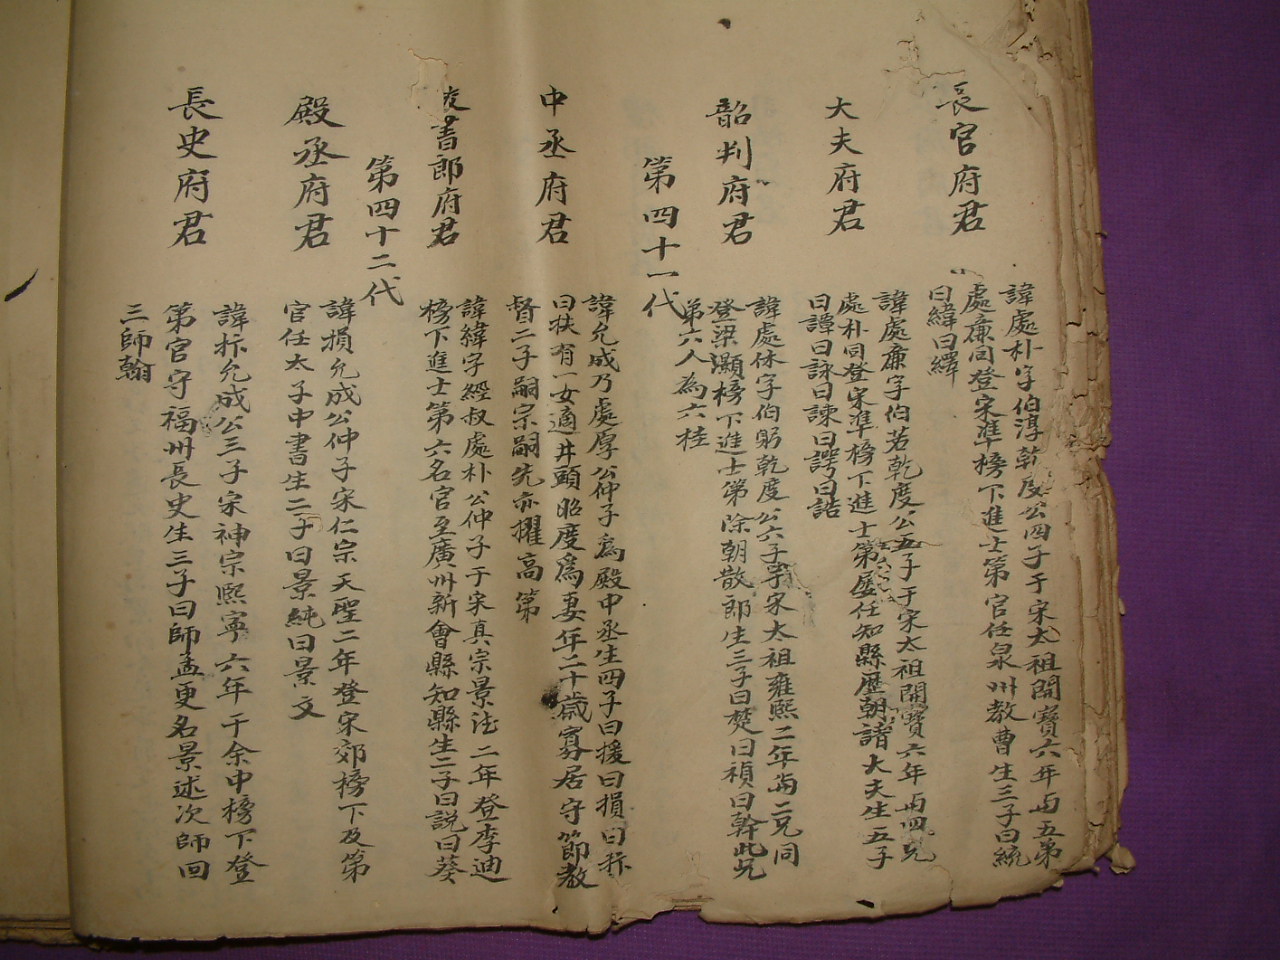 長官府君
諱處朴字伯淳乾度公四子于宋太祖開寶六年與五弟
處廉同登宋準榜下進士第官任泉州教曹生三子曰統
曰緯曰繹
大夫府君
諱處廉字伯若乾度公五子于宋太祖開寶六年與四兄
處朴同登宋準榜下進士第歷任知縣歷朝請大夫生五子
曰譚曰詠曰諫曰諤曰誥
韶判府君
諱處休字伯躬乾度公六子于宋太祖雍熙二年與二兄同
登梁灝榜下進士第除朝散郎生三子曰楚曰禎曰幹此兄
弟六人為六桂
第四十一代
中丞府君
諱允成乃處厚公仲子為殿中丞生四子曰援曰損曰
曰扶有一女適井頭昭度為妻年二十歲寡居守節教
督二子嗣宗嗣先亦擢高第
書郎府君
諱緯字經叔處朴公仲子于宋真宗景德二年登李迪
榜下進士第六名官至廣州新會縣知縣生二子曰說曰葵
第四十二代
殿丞府君
諱損允成公仲子宋仁宗天聖二年登宋郊榜下及第
官任太子中書生二子曰景純曰景文
長史府君
諱 允成公三子宋神宗熙寧六年于余中榜下登
第官守福州長史生三子曰師孟更名景述次師回
三師翰